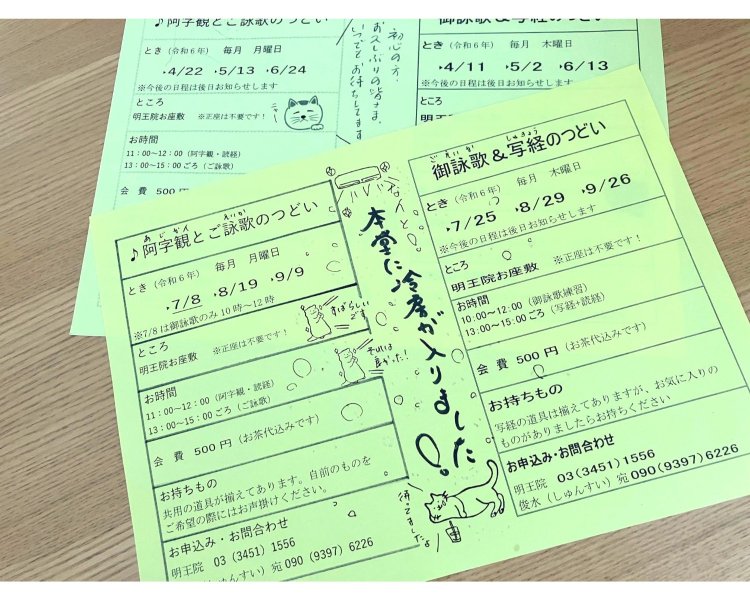 ♪阿字観とご詠歌のつどい
とき（令和６年） 毎月 月曜日
▸4/22 ▸5/13 ▸6/24
※今後の日程は後日お知らせします
ところ
明王院お座敷 ※正座は不要です！
お時間
11：00～12：00（阿字観・読経）
13：00～15：00ごろ（ご詠歌）
会 費 500円
ニャー
初心の方、
お久しぶりの皆さま、
いつでもお待ちしてます
御詠歌＆写経のつどい
とき（令和６年） 毎月 木曜日
▸4/11 ▸5/2 ▸6/13
※今後の日程は後日お知らせします
ところ
明王院お座敷
あじかん えいか
♪阿字観とご詠歌のつどい
とき（令和６年） 毎月 月曜日
▸7/8 ▸8/19 ▸9/9
※7/8は御詠歌のみ10時～12時
ところ
明王院お座敷 ※正座は不要です！
お時間
11：00～12：00（阿字観・読経）
13：00～15：00ごろ（ご詠歌）
会 費 500円（お茶代込みです）
お持ちもの
共用の道具が揃えてあります。自前のものを
ご希望の際にはお声掛けください。
お申込み・お問合わせ
明王院 03（3451）1556
俊水（しゅんすい）宛 090（9397）6226
なんと
本堂に冷房が入りました
すばらしい
です！
それは
良かった！
待ってましたよ
ごえいか しゃきょう
御詠歌＆写経のつどい
とき（令和６年） 毎月 木曜日
▸7/25 ▸8/29 ▸9/26
※今後の日程は後日お知らせします
ところ
明王院お座敷 ※正座は不要です！
お時間
10:00～12:00（御詠歌練習）
13:00～15:00ごろ（写経+読経）
会 費 500円（お茶代込みです）
お持ちもの
写経の道具は揃えてありますが、お気に入りの
ものがありましたらお持ちください
お申込み・お問合わせ
明王院 03（3451）1556
俊水（しゅんすい）宛 090（9397）6226